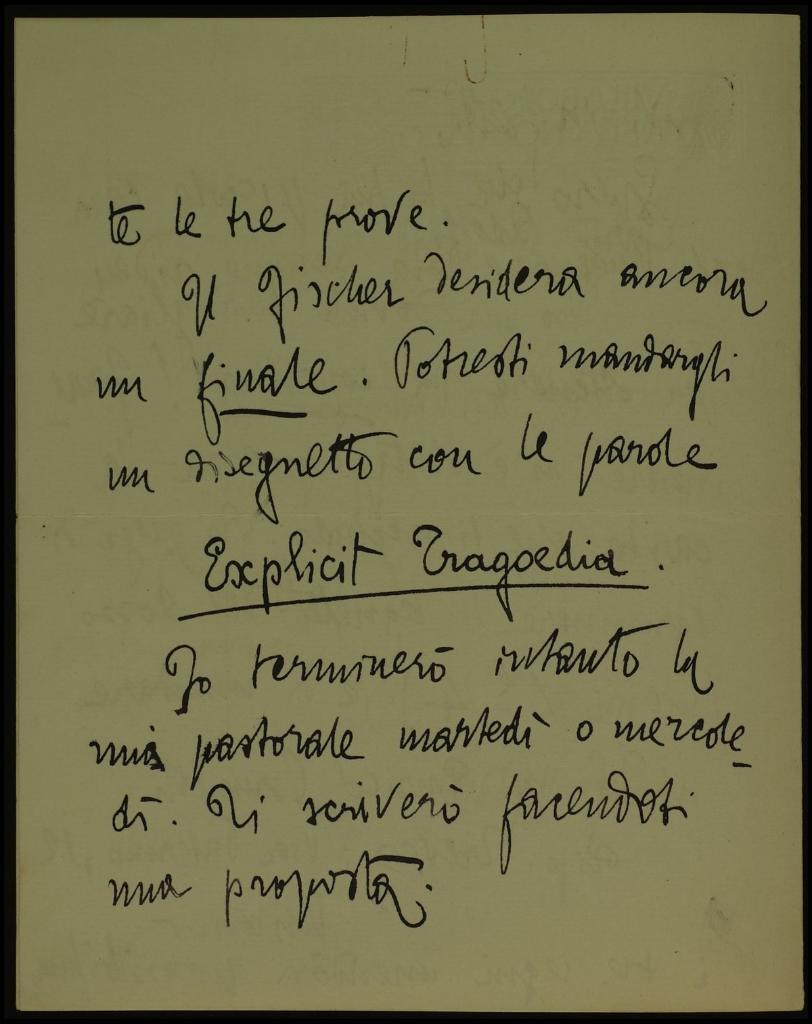 te le tre prove.
Il Fischer desidera ancora
un finale. Potresti mandargli
un disegnetto con le parole
Explicit Tragoedia.
Io terminerò intanto la
mia pastorale martedì o mercole-
dì. Ti scriverò facendoti
una proposta.